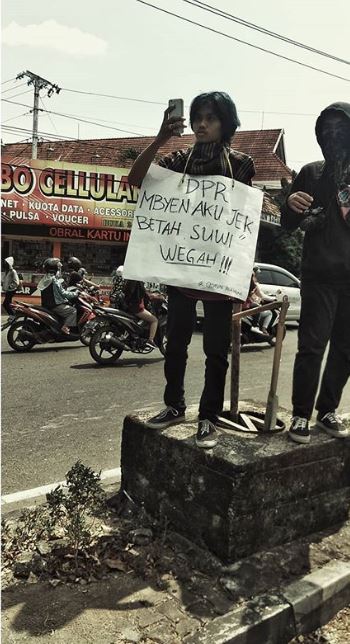 BO CELLULAR
NET • KUOTA DATA • ACESSO
• PULSA • VOUCER
OBRAL KARTU IN
DPR
MBYEN AKU JEK
BETAH SUWI"
WEGAH !!!